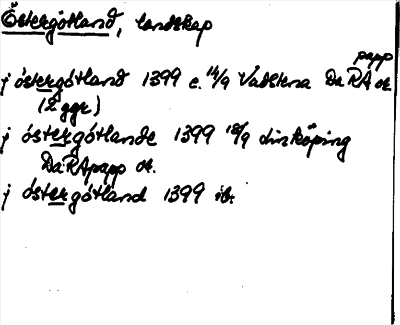 Östergötland, landskap
papp
j östergötland 1399 e. 14/9 Vadstena DaRA or.
(2 ggr)
j östergötlande 1399 18/9 Linköping
DaRApapp or.
j östergötland 1399 ib.